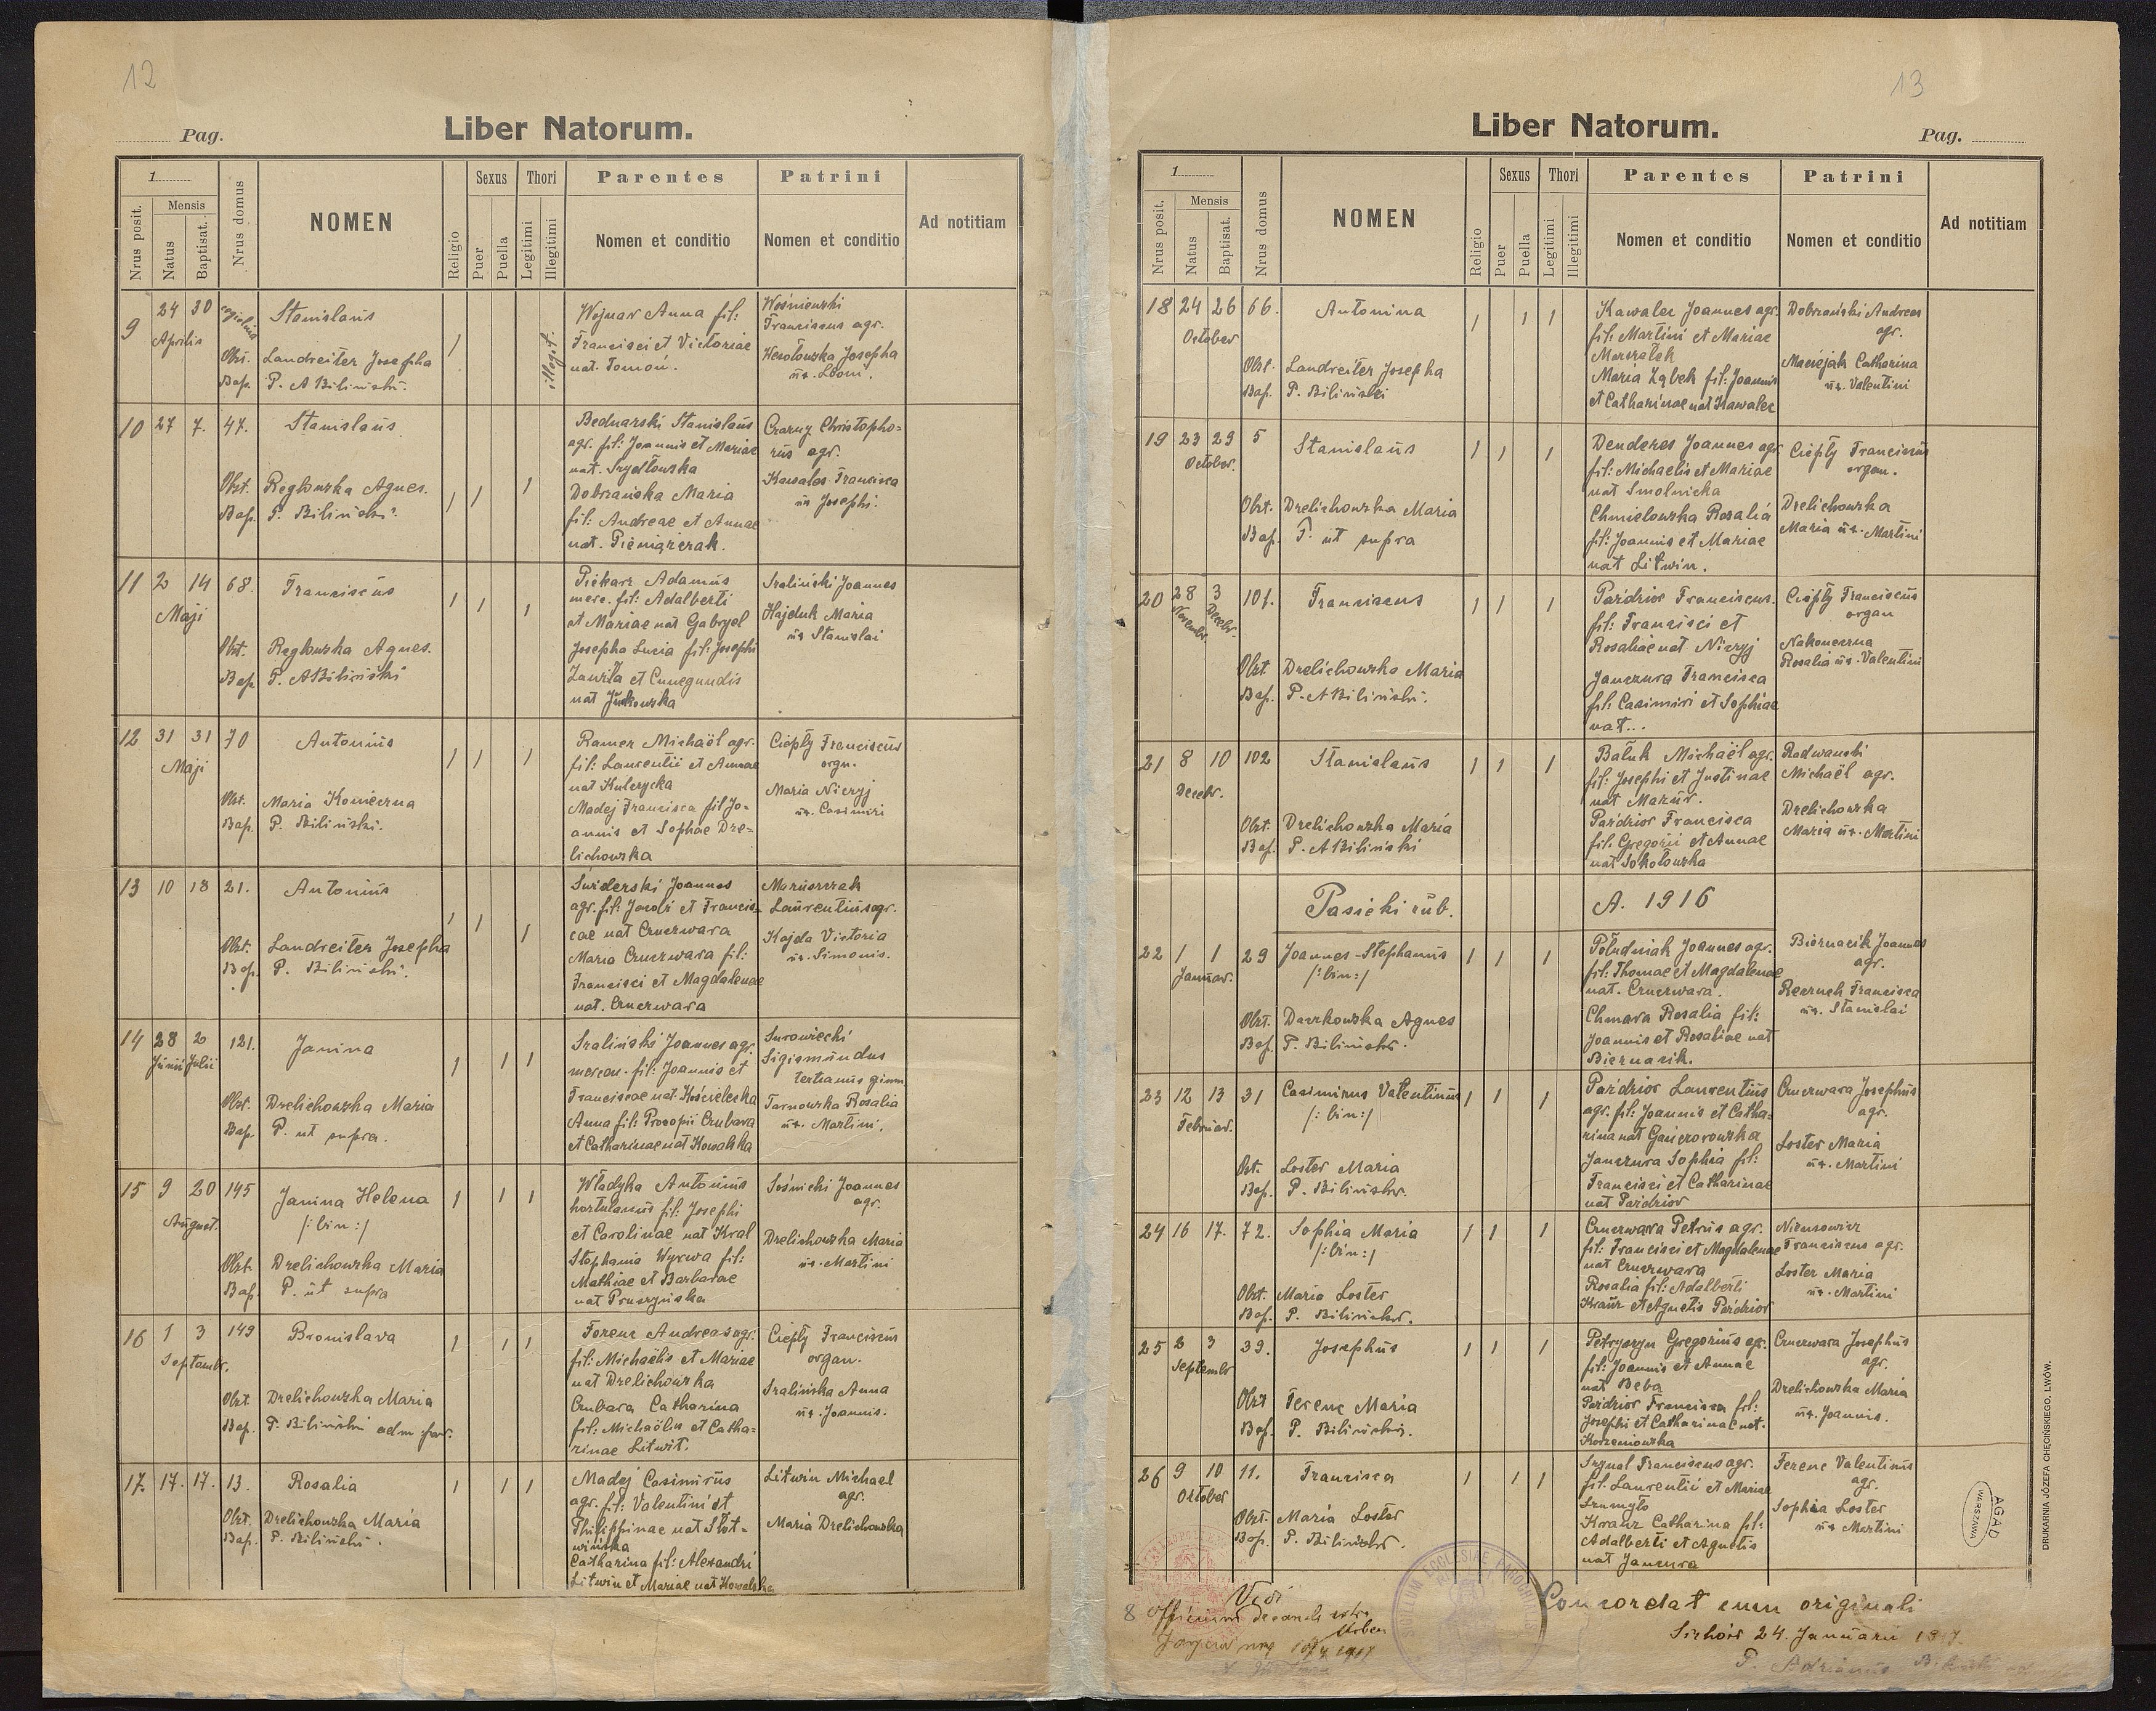 12
Pag.
Liber Natorum.
1
Nrus posit.
Mensis
Natus
Baptisat.
Nrus domus
NOMEN
Religio
Sexus
Puer
Puella
Thori
Legitimi
Illegitimi
Parentes
Nomen et conditio
Patrini
Nomen et conditio
Ad notitiam
9 24 30 Stanislaus
Aprilis
Obst. Landreiter Josepha
Bap. P. A Biliński.
illegit.
Wojnar Anna fil:
Francisci et Victoriae
nat. Tomoń.
Wośniowski
Franciscus agr.
Wesołowska Josepha
ux. Leoni.
10 27 7. 47. Stanislaus
Obst. Regłowska Agnes.
Bap. P. Biliński.
Bednarski Stanislaus
agr. fil: Joannis et Mariae
nat. Szydłowska
Dobrzańska Maria
fil: Andreae et Annae
nat. Pieniążczak.
Czarny Christopho=
rus agr.
Kawaler Francisca
ux Josephi.
11 2 14 68. Franciscus
Maji
Obst. Regłowska Agnes.
Bap P. A Biliński
Piekarz Adamus
merc. fil: Adalberti
et Mariae nat Gabryel
Josepha Lucia fil: Josephi
et Cunegundis
nat
Szaliński Joannes
Hajduk Maria
ux Stanislai
12 31 31 70 Antonius
Maji
Obst. Maria Konieczna
Bap. P. Biliński.
Ramer Michaël agr.
fil: Laurentii et Annae
nat Kulczycka
Madej Francisca fil Jo-
annis et Sophae Dre=
lichowska
Ciepły Franciscus
orgn.
Maria Niczyj
ux. Casimiri
13 10 18 21. Antonius
Obst. Landreiter Josepha
Bap. P. Biliński.
Świderski Joannes
agr. fil: Jacobi et Francis=
cae nat Cruczwara
Maria Cruczwara fil:
Francisci et Magdalenae
nat. Cruczwara
Maruszczak
Laurentius agr.
Kajda Victoria
ux. Simonis.
14 28 2 121. Janina
Junii Julii
Obst. Drelichowska Maria
Bap. P. ut supra.
Szaliński Joannes agr.
mercan. fil: Joannis et
Franciscae nat. Kościelecka
Anna fil: Procopii Czubara
et Catharinae nat Kowalska
Surowiecki
Sigismundus
tertianus gimn
Tarnowska Rosalia
ux. Martini.
15 9 20 145 Janina Helena
August. /:bin:/
Obst. Drelichowska Maria
Bap P. ut supra
Władyka Antonius
hortulanus fil: Josephi
et Carolinae nat Kral
Stephania Wyrwa fil:
Mathiae et Barbarae
nat Pruszyńska
Sośnicki Joannes
agr.
Drelichowska Maria
ux. Martini
16 1 3 149 Bronislava
Septembr.
Obst Drelichowska Maria
Bap. P. Biliński adm. par.
Ferenc Andreas agr.
fil: Michaëlis et Mariae
nat Drelichowska
Czubara Catharina
fil: Michaëlis et Catha=
rinae Litwin.
Ciepły Franciscus
organ.
Szalińska Anna
ux. Joannis.
17. 17. 17. 13. Rosalia
Obst. Drelichowska Maria
Bap. P. Biliński.
Madej Casimirus
agr. fil: Valentini et
Philippinae nat Słot=
wińska
Catharina fil: Alexandri
Litwin et Mariae nat Kowalska
Litwin Michael
agr.
Maria Drelichowska
13
Liber Natorum.
Pag.
1
Nrus posit.
Mensis
Natus
Baptisat.
Nrus domus
NOMEN
Religio
Sexus
Puer
Puella
Thori
Legitimi
Illegitimi
Parentes
Nomen et conditio
Patrini
Nomen et conditio
Ad notitiam
18 24 26 66. Antonina
October
Obst. Landreiter Josepha
Bap. P. Biliński
Kawaler Joannes agr.
fil: Martini et Mariae
Marszałek
Maria Ząbek fil: Joannis
et Catharinae nat Kawaler
Dobrzański Andreas
agr.
Maciejak Catharina
ux. Valentini
19 23 29 5 Stanislaus
October.
Obst. Drelichowska Maria
Bap. P. ut supra
Denderes Joannes agr
fil: Michaelis et Mariae
nat Smolnicka
Chmielowska Rosalia
fil: Joannis et Mariae
nat Litwin.
Ciepły Franciscus
organ.
Drelichowska
Maria ux. Martini
20 28 3 101. Franciscus
Novembr. Decebr.
Obst Drelichowska Maria
Bap. P. A Biliński.
Paździor Franciscus.
fil: Francisci et
Rosaliae nat. Niczyj
Janczura Francisca
fil: Casimiri et Sophiae
nat...
Ciepły Franciscus
organ
Nakoneczna
Rosalia ux. Valentini
21 8 10 102 Stanislaus
Decebr.
Obst. Drelichowska Maria
Bap. P. A Biliński
Bałuk Michaël agr.
fil: Josephi et Justinae
nat Mazur.
Paździor Francisca
fil: Gregorii et Annae
nat Sokołowska
Radwański
Michaël agr.
Drelichowska
Maria ux. Martini
Pasieki zub. A. 1916
22 1 1 29 Joannes-Stephanus
Januar. /:bin:/
Obst. Daszkowska Agnes
Bap. P. Biliński.
Południak Joannes agr.
fil: Thomae et Magdalenae
nat. Cruczwara.
Chmara Rosalia fil:
Joannis et Rosaliae nat
Biernacik.
Biernacik Joannes
agr.
Reczuch Francisca
ux. Stanislai
23 12 13 31 Casimirus Valentinus
Februar. /:bin:/
Obst. Loster Maria
Bap. P. Biliński.
Paździor Laurentius
agr. fil: Joannis et Catha=
rina nat Gąsiorowska
Janczura Sophia fil:
Francisci et Catharinae
nat Paździor
Cruczwara Josephus
agr.
Loster Maria
ux. Martini
24 16 17. 72. Sophia Maria
/:bin:/
Obst. Maria Loster
Bap. P. Biliński.
Cruczwara Petrus agr.
fil: Francisci et Magdalenae
nat Cruczwara
Rosalia fil: Adalberti
Kranz et Agnetis Paździor
Franciscus agr.
Loster Maria
ux. Martini
25 2 3 39. Josephus
Septembr
Obst Ferenc Maria
Bap. P. Biliński.
Petryszyn Gregorius agr.
fil: Joannis et Annae
nat Beba
Paździor Francisca fil:
Josephi et Catharinae nat.
Korzeniowska
Cruczwara Josephus
agr.
Drelichowska Maria
ux. Joannis.
26 9 10 11. Francisca
October
Obst. Maria Loster
Bap. P. Biliński.
Sygnal Franciscus agr.
fil. Laurentii et Mariae
Szumyło
Kranz Catharina fil:
Adalberti et Agnetis
nat Janczura
Ferenc Valentinus
agr.
Sophia Loster
ux Martini
AGAD
WARSZAWA
DRUKARNIA JÓZEFA CHĘCIŃSKIEGO, LWÓW.
Vidi
Officium decanale extra
Urben
SIGILLUM ECCLESIAE PAROCHIALIS
Concordat cum originali
Sichów 24. Januarii 1917.
P. Adrianus